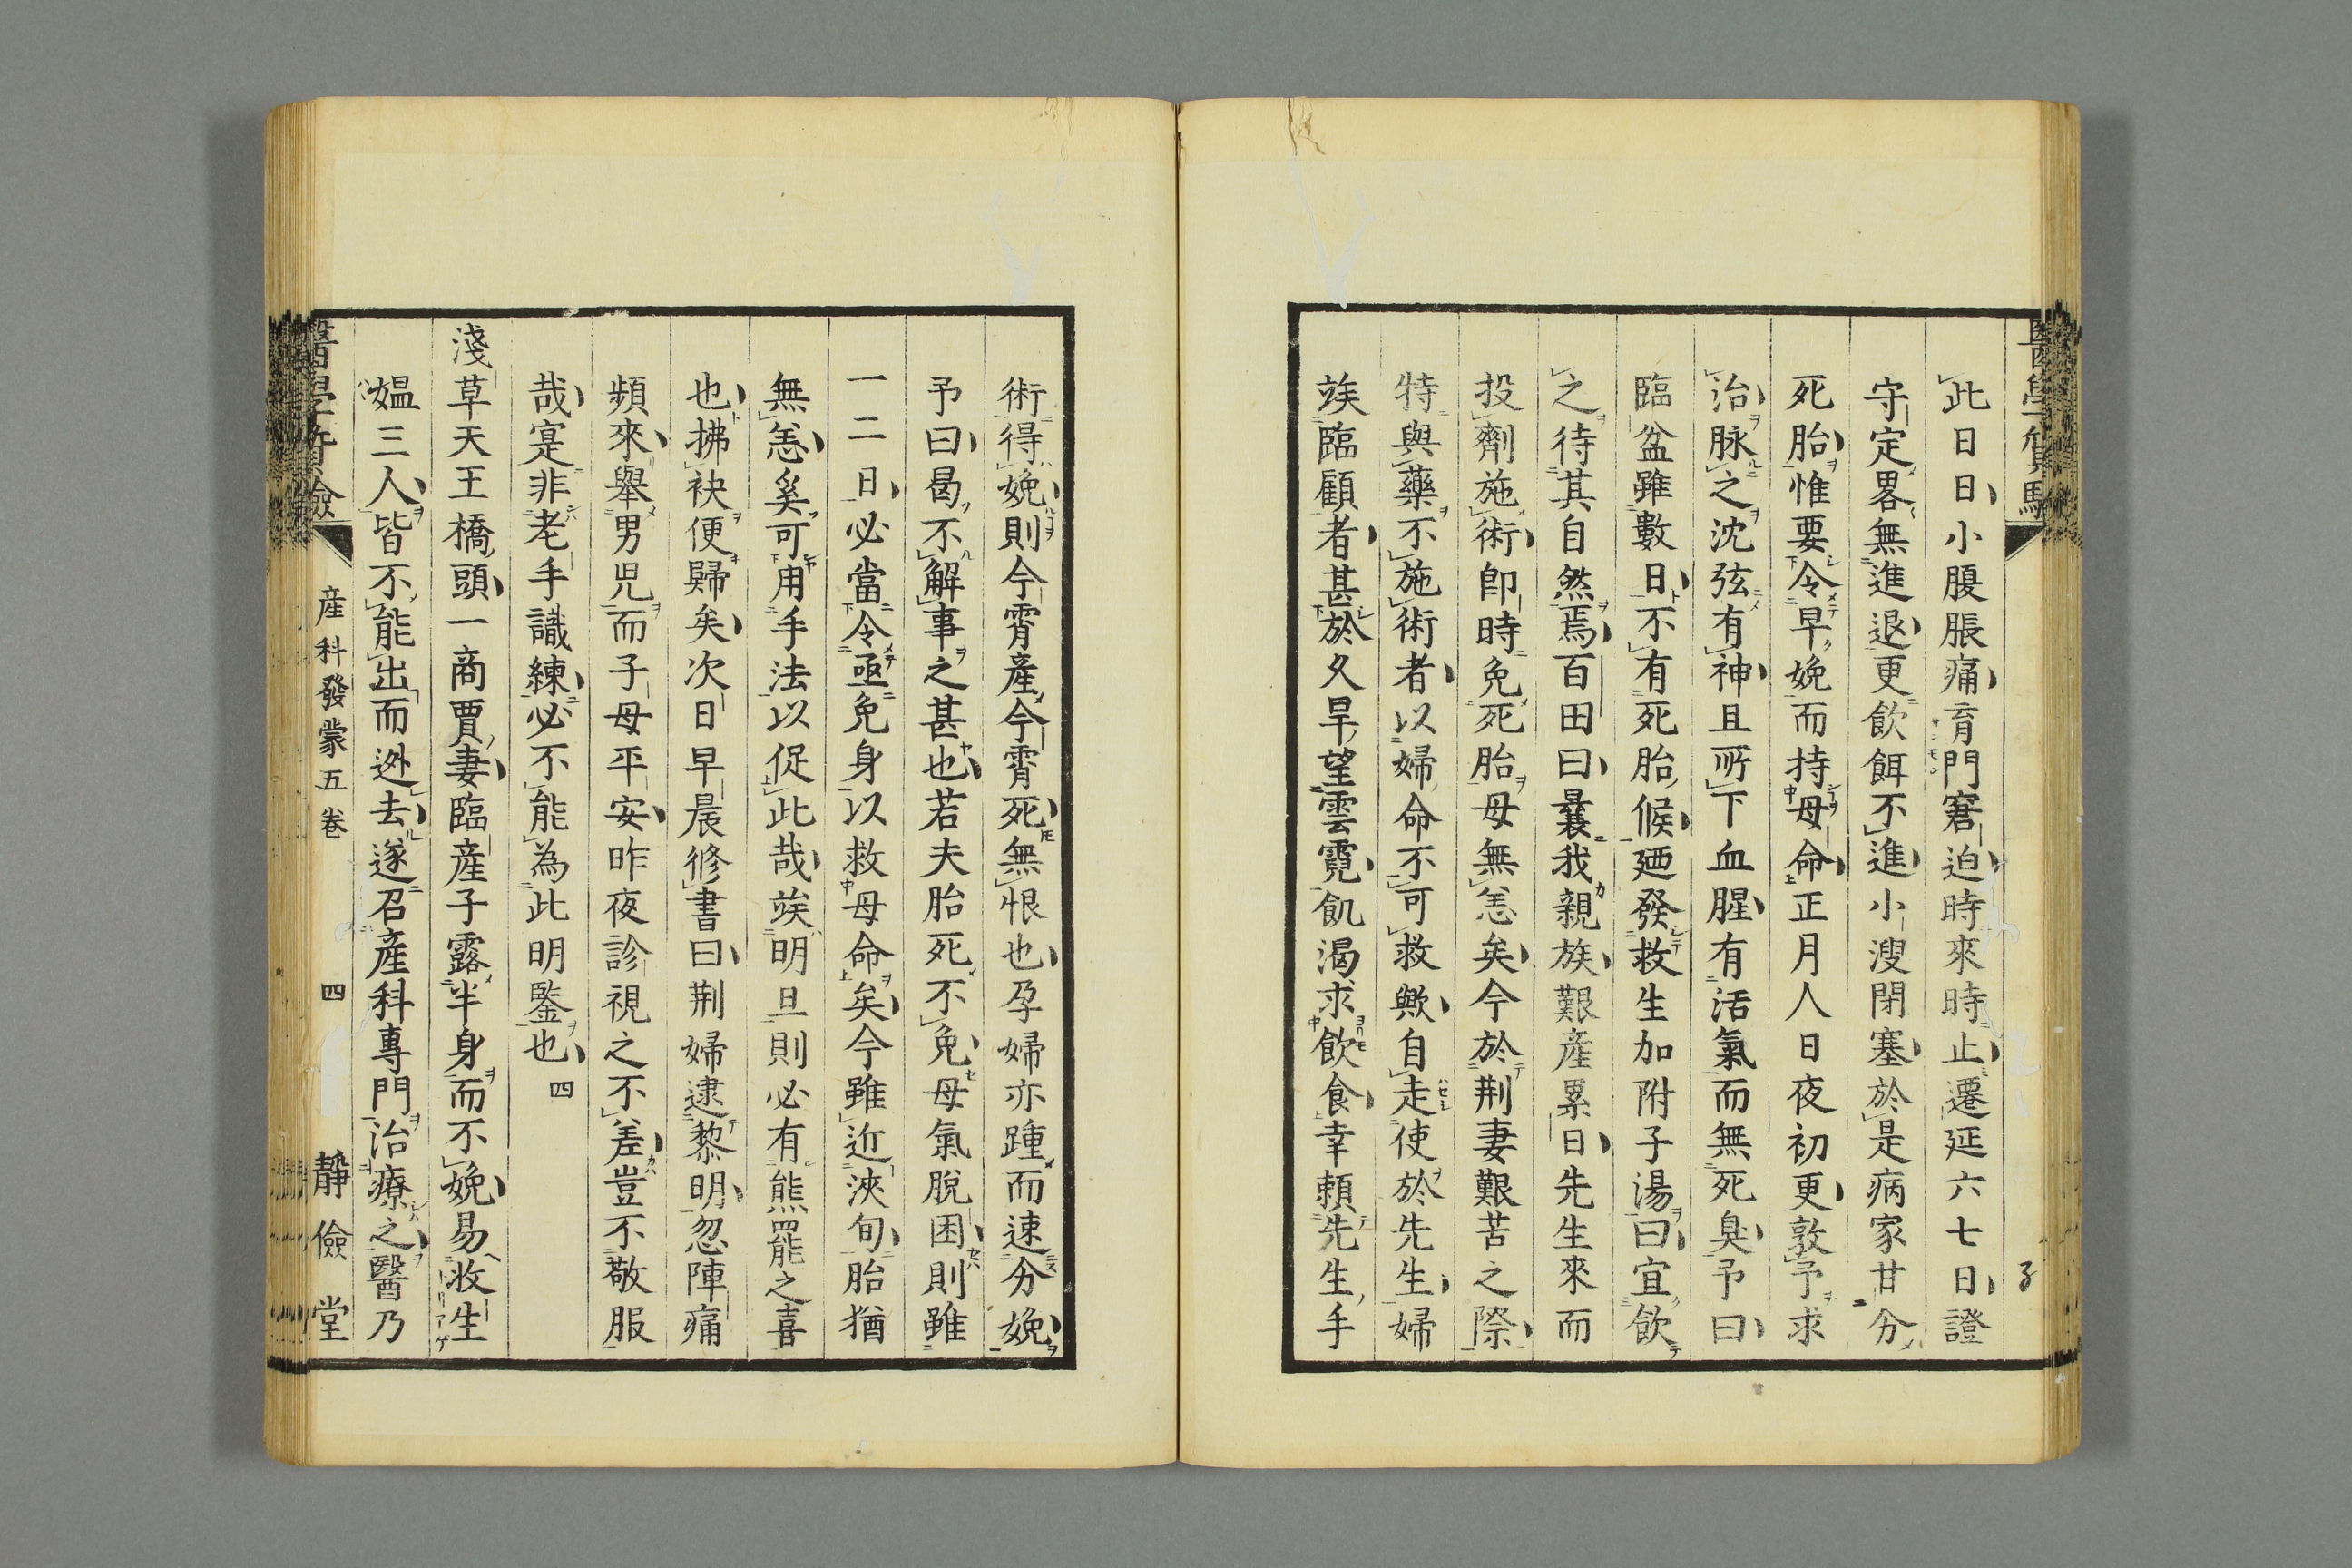 此日日小腹脹痛育門窘迫時來時止遷延六七日證
守定畧無進退更飲餌不進小溲閉塞於是病家甘分
死胎惟要令早娩而持母命正月人日夜初更敦予求
治脉之沈弦有神且所下血腥有活氣而無死臭予曰
臨盆雖數日不有死胎候廼發救生加附子湯曰宜飲
之待其自然焉百田曰曩我親族艱産累日先生來而
投劑施術即時免死胎母無恙矣今於荆妻艱苦之際
特與藥不施術者以婦命不可救歟自走使於先生婦
竢臨顧者甚於久旱望雲霓飢渴求飲食幸頼先生手
術得娩則今宵産今宵死無恨也孕婦亦踵而速分娩
予曰曷不解事之甚也若夫胎死不免母氣脫困則雖
一二日必當令亟免身以救母命矣今雖近浹旬胎猶
無恙奚可用手法以促此哉竢明旦則必有熊羆之喜
也拂袂便歸矣次日早晨修書曰荆婦逮黎明忽陣痛
頻來舉男児而子母平安昨夜診視之不差豈不敬服
哉寔非老手識練必不能為此明鑒也四
淺草天王橋頭一商賈妻臨産子露半身而不娩易收生
媼三人皆不能出而迯去遂召産科專門治療之醫乃
産科發蒙五卷
四
靜儉堂